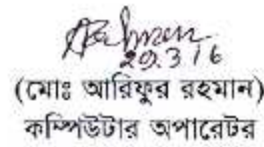 29.3.16
(মোঃ আরিফুর রহমান)
কম্পিউটার অপারেটর